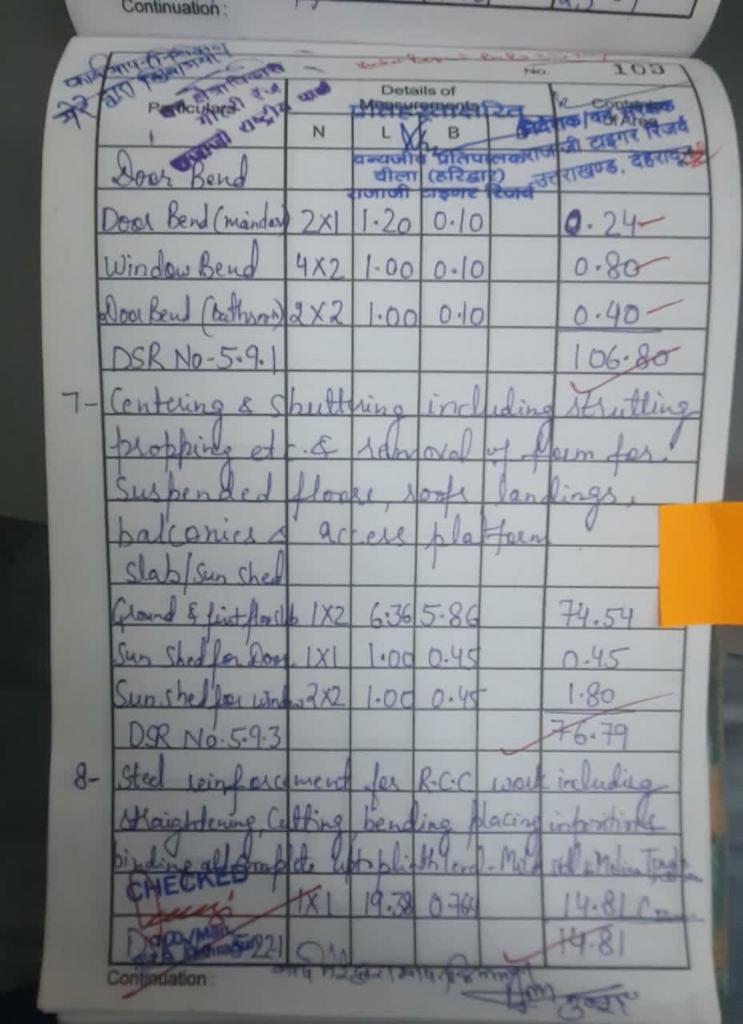 Continuation :
No. 103
मेरे द्वारा
Particulars
Details of
Measurements
Contents
of Area
N L B
राजाजी राष्ट्रीय पार्क
वन्यजीव प्रतिपालक
चीला (हरिद्वार)
राजाजी टाइगर रिजर्व
निदेशक/
राजाजी टाइगर रिजर्व
उत्तराखण्ड, देहरादून
Door Bend
Door Bend (maindoor) 2X1 1.20 0.10 0.24
Window Bend 4X2 1.00 0.10 0.80
Door Bend (bathroom) 2X2 1.00 0.10 0.40
DSR No-5.9.1 106.80
7- Centering & shuttering including strutting
propping etc. & removal of form for.
Suspended floors, roofs landings,
balconies & access platform
slab/sun shed
Ground & first floor slab 1X2 6.36 5.86 74.54
Sun Shed for Door 1X1 1.00 0.45 0.45
Sun shed for window 2X2 1.00 0.45 1.80
DSR No.5.9.3 76.79
8- Steel reinforcement for R.C.C work including
straightening, Cutting bending placing in position &
binding all complete upto plinth level-Mild steel & Medium
CHECKED
1X1 19.38 0.764 14.81
22.1 14.81
Continuation :